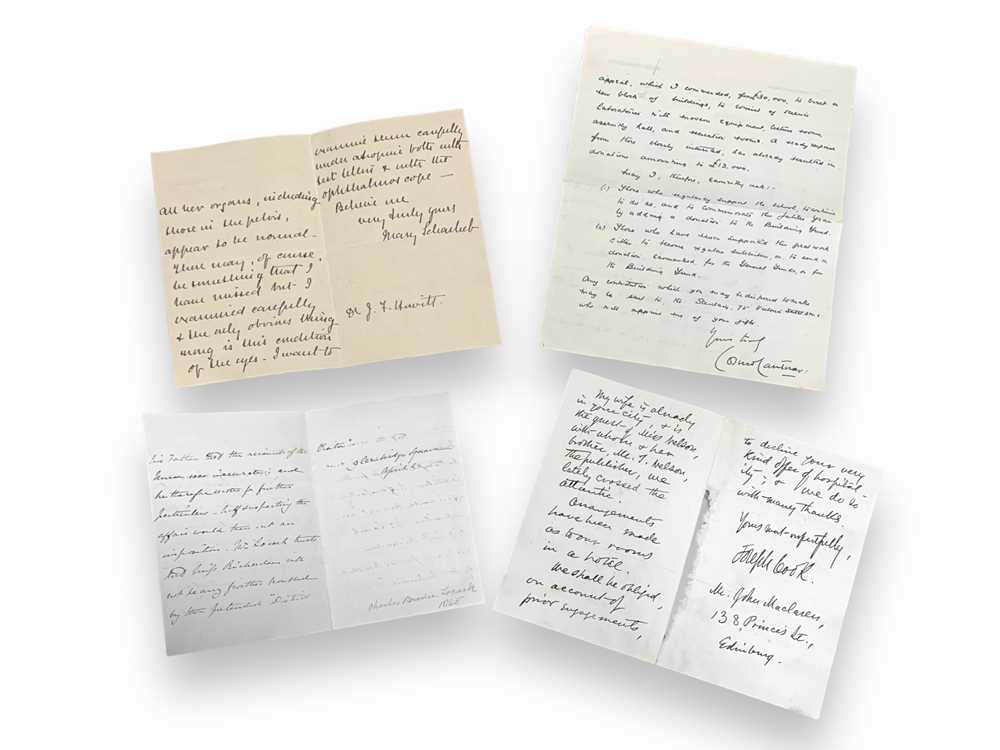 All her organs, including
those in the pelvis,
appear to be normal -
There may, of course,
be something that I
have missed but I
examined carefully
& the only obvious thing
wrong is this condition
of the eyes. I want to
examine them carefully
under atropine both with
test letters & with the
ophthalmoscope —
Believe me
very truly yours
Mary Scharlieb
Dr J. F. Hewitt.
appeal, which I commended, for £30,000, to erect a
new block of buildings, to consist of
laboratories with modern equipment, lecture room,
assembly hall, and recreation rooms. A ready response
from those closely interested, has already resulted in
donations amounting to £12,000.
May I, therefore, earnestly ask:-
(1) Those who regularly support the school, to continue
to do so, and to commemorate the Jubilee Year
by adding a donation to the Building Fund.
(2) Those who have never supported the past work
either to become regular subscribers, or to send a
donation earmarked for the General Funds, or for
the Building Fund.
Any contribution which you may be disposed to make
may be sent to, the
who will apprise me of your gift.
Yours truly
his Father told the account of the
was inaccurate; and
he therefore wrote for further
particulars - half suspecting the
affair would turn out an
imposition. Mr Locock trusts
that Miss Richardson will
not be any further troubled
by the pretended "District
April
Charles Brodie Locock
My wife is already
in your city, & is
the guest of Miss Nelson,
with whom & her
brother, Mr. T. Nelson,
the publisher, we
lately crossed the
Atlantic.
Arrangements
have been made
as to our rooms
in a hotel.
We shall be obliged,
on account of
prior engagements,
to decline your very
kind offer of hospital-
ity; & we do so
with many thanks.
Yours most respectfully,
Joseph Cook.
Mr. John Maclaren,
138, Princes St.,
Edinburg.